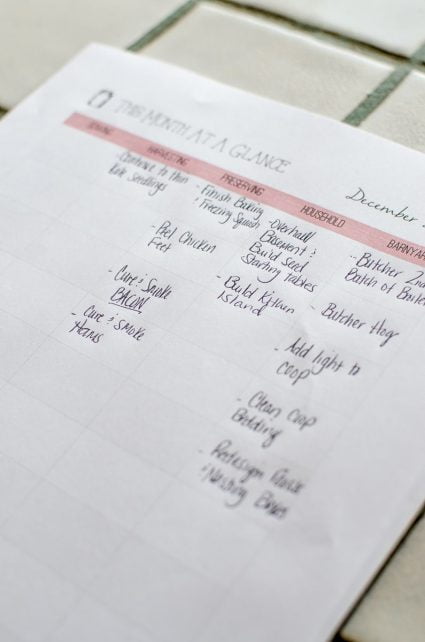 THIS MONTH AT A GLANCE
December
SOWING
HARVESTING
PRESERVING
HOUSEHOLD
BARNYAR
- Continue to thin
Kale Seedlings
- Finish Baking
& Freezing Squash
- Peel Chicken
Feet
- Cure & Smoke
BACON
- Cure & Smoke
Hams
- Overhaul
Basement &
Build Seed
Starting Tables
- Build Kitchen
Island
- Butcher 2nd
Batch of
- Butcher Hog
- Add light to
coop
- Clean Coop
Bedding
- Redesign
& Nesting Boxes